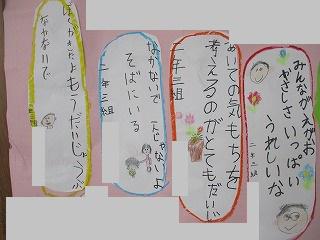 みんながえがお
やさしさいっぱい
うれしいな
二年三組
あいての気もちを
考えるのがとてもだいじ
二年三組
なかないで 一人じゃないよ
そばにいる
二年三組
ぼくがきたよもうだいじょうぶ
なかないで
二年三組